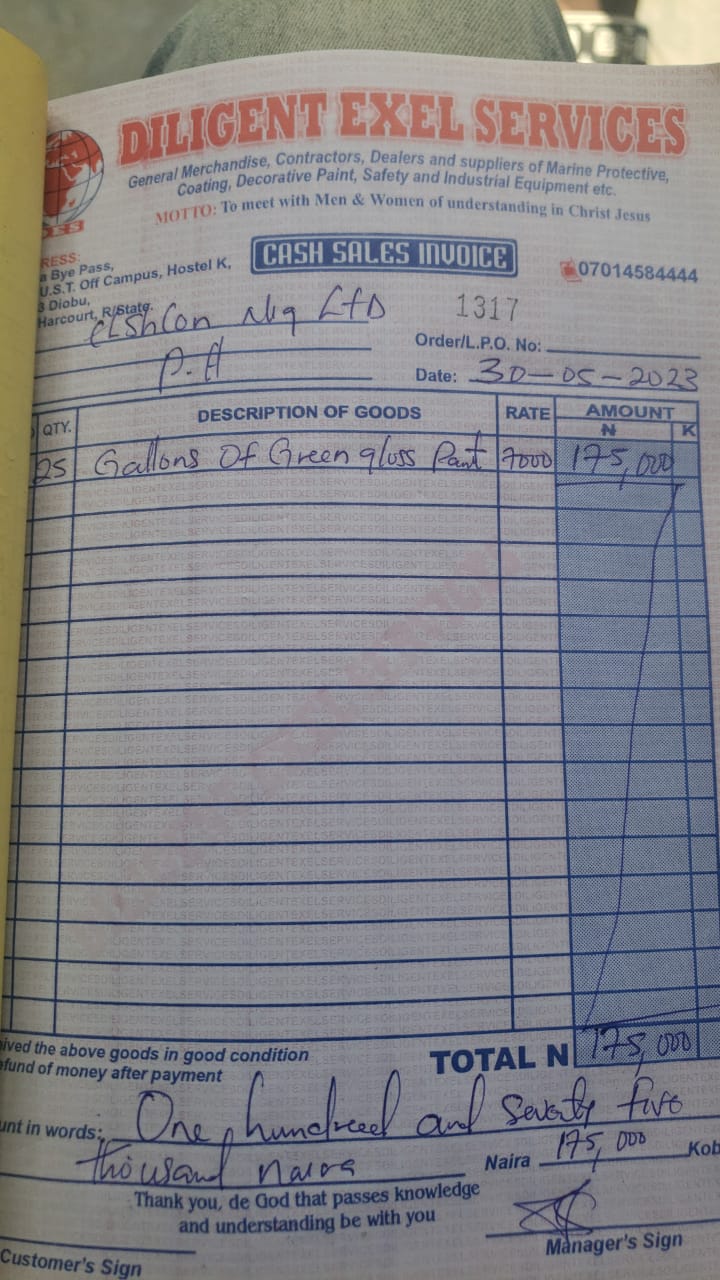 DILIGENT EXEL SERVICES
General Merchandise, Contractors, Dealers and suppliers of Marine Protective,
Coating, Decorative Paint, Safety and Industrial Equipment etc.
MOTTO: To meet with Men & Women of understanding in Christ Jesus
RESS:
a Bye Pass,
U.S.T. Off Campus, Hostel K,
3 Diobu,
Harcourt, R/State.
CASH SALES INVOICE
07014584444
Nig LTD
1317
P.H
Order/L.P.O. No:
Date: 30-05-2023
QTY. DESCRIPTION OF GOODS RATE AMOUNT
N K
25 Gallons Of Green gloss Pant 7000 175,000
ived the above goods in good condition
efund of money after payment
TOTAL N 175,000
unt in words: One hundred and Seventy five
thousand naira
Naira 175,000 Kob
Thank you, de God that passes knowledge
and understanding be with you
Customer's Sign
Manager's Sign